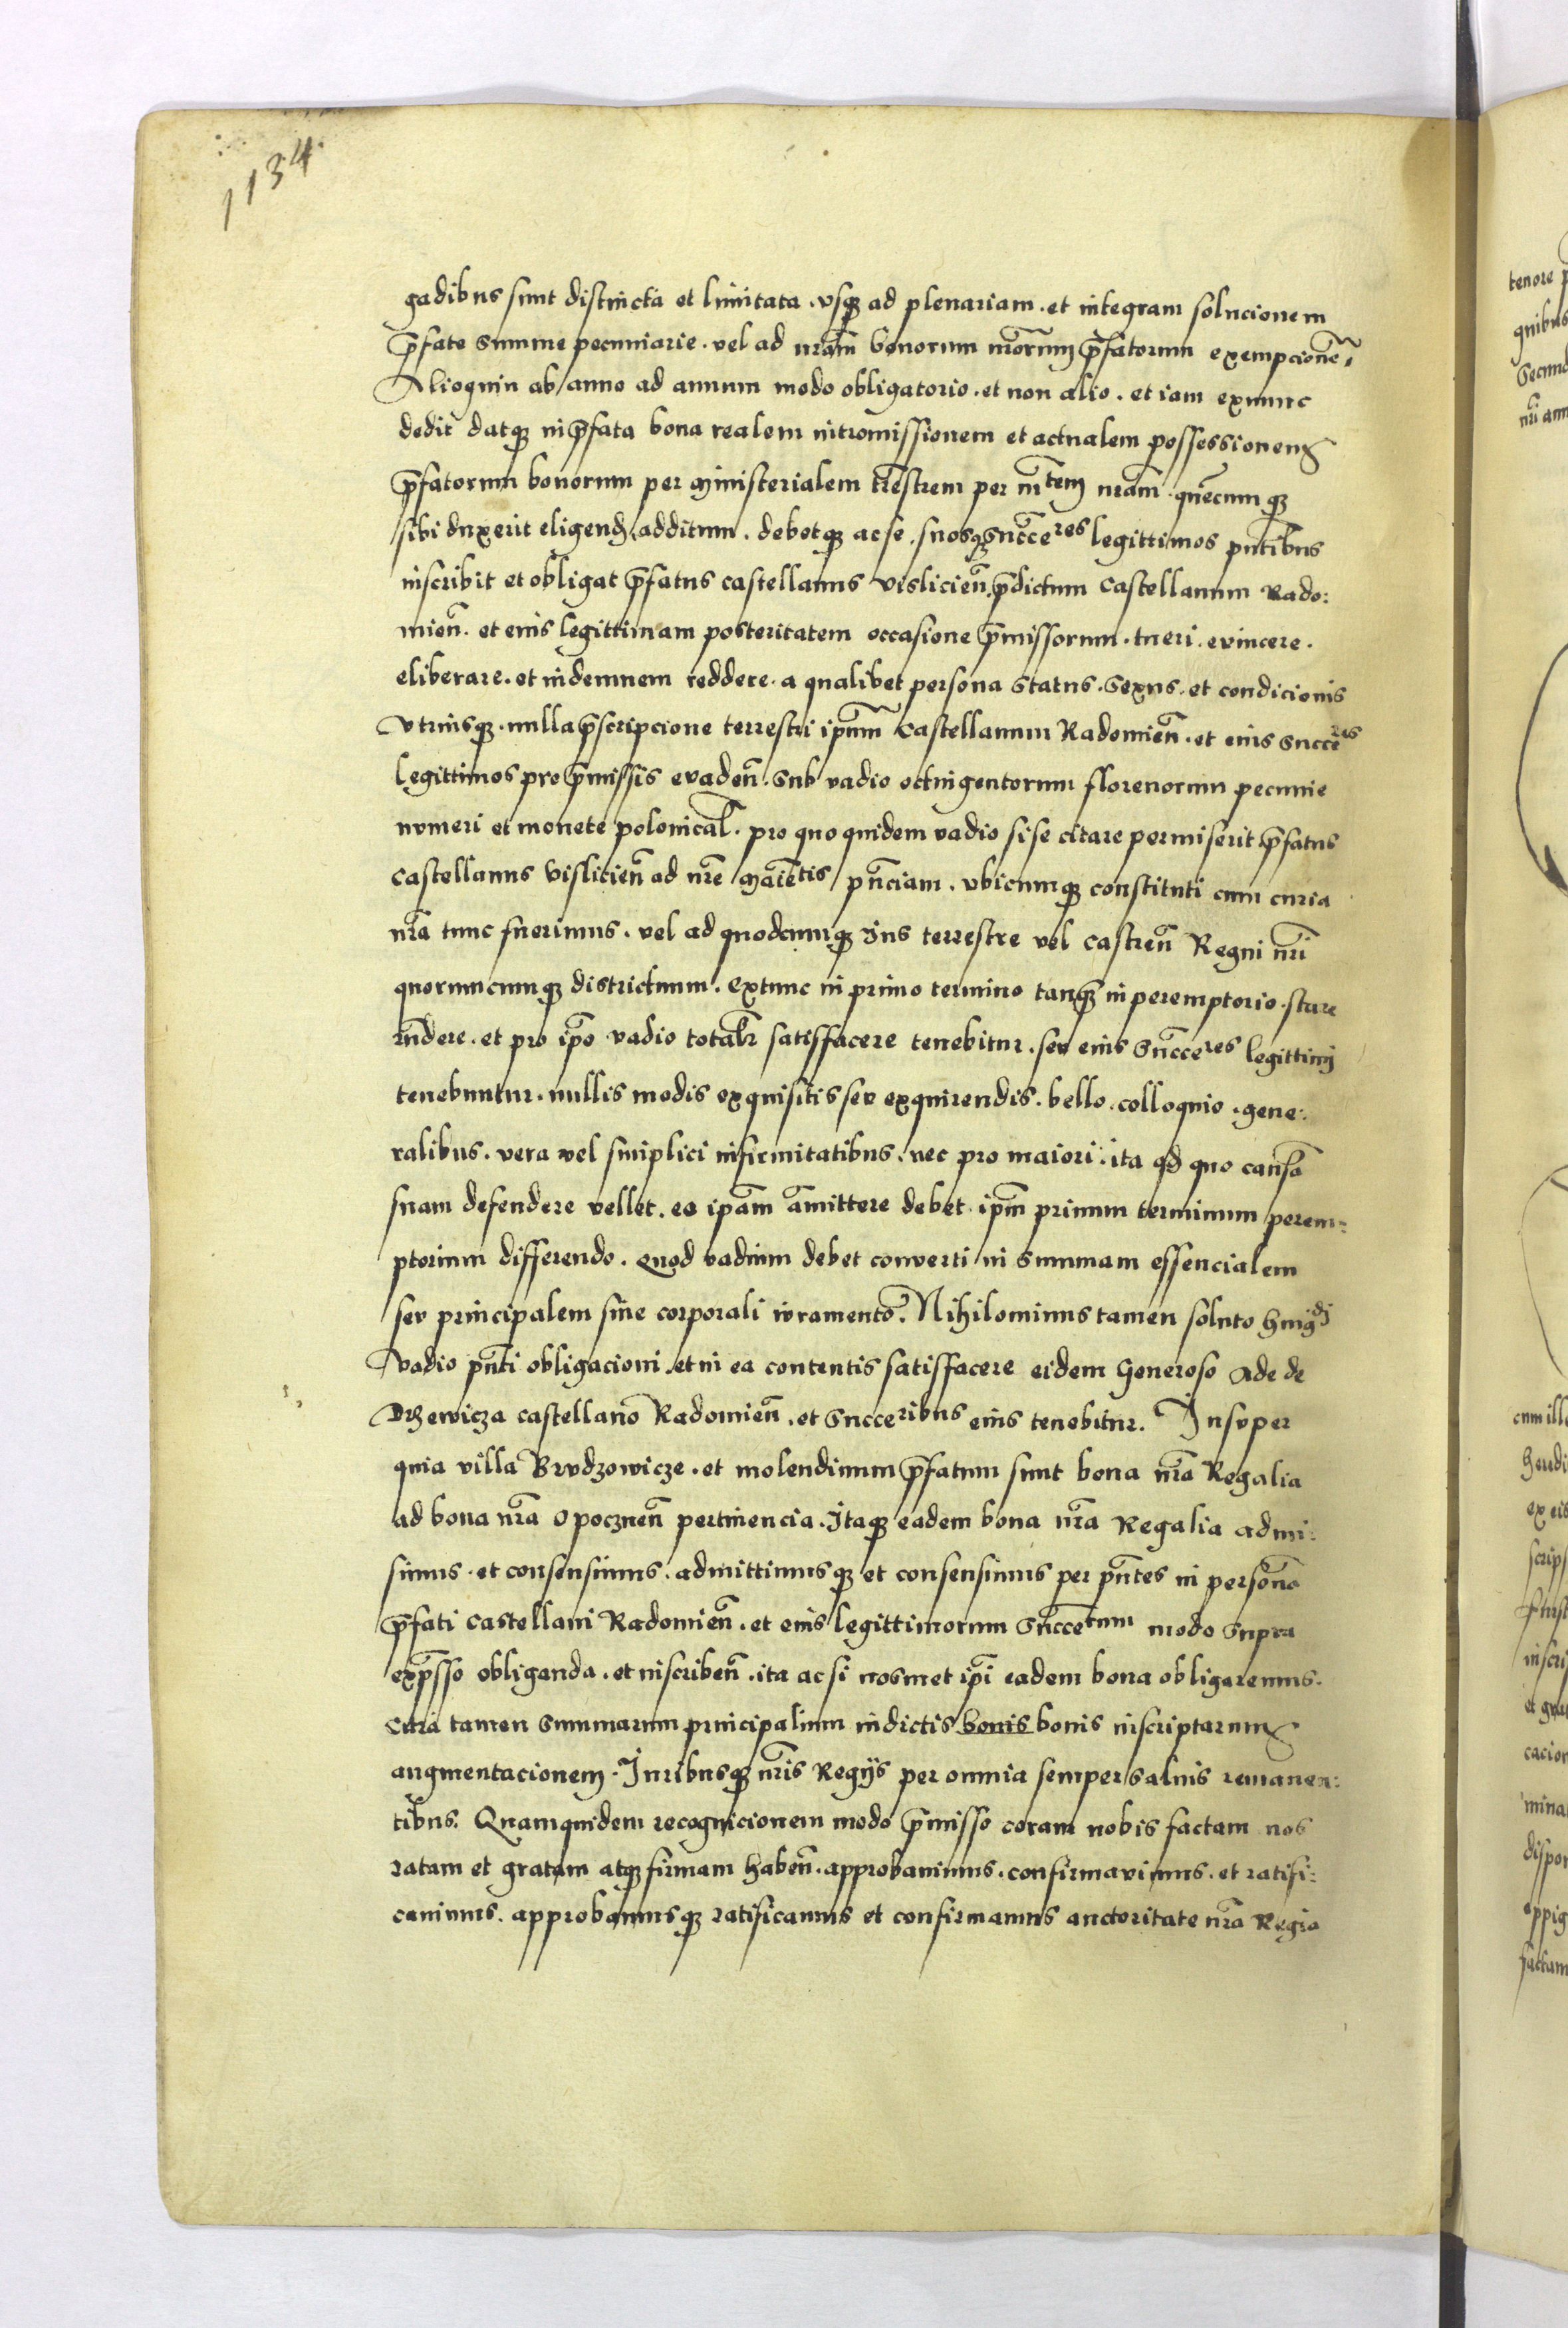 1134.
gadibus sunt distincta et limitata. vsqꝫ ad plenariam. et integram solucionem
p̄fate summe pecuniarie. vel ad nr̄am bonorum nr̄orum p̄fatorum exempcionē.
Alioquin ab anno ad annum modo obligatorio. et non alio. et iam exnunc
dedit datqꝫ in p̄fata bona realem intromissionem et actualem possessionem
p̄fatorum bonorum per ministerialem tr̄estrem per m̄tem nr̄am quēcumqꝫ
sibi duxerit eligend additum. debetqꝫ ac se. suosqꝫ succ̄eres legittimos pn̄tibus
inscribit et obligat p̄fatus castellanus vislicien̄. p̄dictum castellanum Rado:
mien̄. et eius legittimam posteritatem occasione p̄missorum. tueri. evincere.
eliberare. et indemnem reddere. a qualibet persona status. sexus. et condicionis
vtriusqꝫ. nulla p̄scripcione terrestri ipsum Castellanum Radomien̄. et eius succ̄eres
legittimos pro p̄missis evaden̄. sub vadio octingentorum florenorum pecunie
numeri et monete polonical. pro quo quidem vadio si se citare permiserit p̄fatus
castellanus vislicien̄ ad nr̄e Maiēstis pn̄ciam. vbicumqꝫ constituti cum curia
nr̄a tunc fuerimus. vel ad quodcumqꝫ Ius terrestre vel castren̄ Regni nr̄i
quorumcumqꝫ districtuum. extunc in primo termino tanqꝫ in peremptorio. stare
rn̄dere. et pro ip̄o vadio totalr̄ satisfacere tenebitur. seu eius succ̄eres legittimi
tenebuntur. nullis modis exquisitis seu exquirendis. bello. colloquio. gene:
ralibus. vera vel simplici infirmitatibus. nec pro maiori. ita qd quo causā
suam defendere vellet. eo ip̄am amittere debet ip̄m primum terminum perem:
ptorium differendo. Quod vadium debet converti in summam essencialem
seu principalem sine corporali iuramento. Nihilominus tamen soluto huiꝰdi
vadio pn̄ti obligacioni. et in ea contentis satisfacere eidem Generoso Ade de
Drzewicza castellano Radomien̄. et succeribus eius tenebitur. Insuper
quia villa Brudzowicze. et molendinum p̄fatum sunt bona nr̄a Regalia
ad bona nr̄a Opocznen̄ pertinencia. Itaqꝫ eadem bona nr̄a Regalia admi:
simus. et consensimus. admittimusqꝫ et consensimus per pn̄tes in personā
p̄fati castellani Radomien̄. et eius legittimorum succ̄erum modo supra
exp̄sso obliganda. et inscriben̄. ita ac si nosmet ip̄i eadem bona obligaremus.
citra tamen summarum principalium in dictis bonis bonis inscriptarum
augmentacionem. Iuribusqꝫ nr̄is Regijs per omnia semper saluis remanen:
tibus. Quamquidem recognicionem modo p̄misso coram nobis factam nos
ratam et gratam atqꝫ firmam haben̄. approbauimus. confirmavimus. et ratifi:
cauimus. approbamusqꝫ ratificamus et confirmamus auctoritate nr̄a Regia